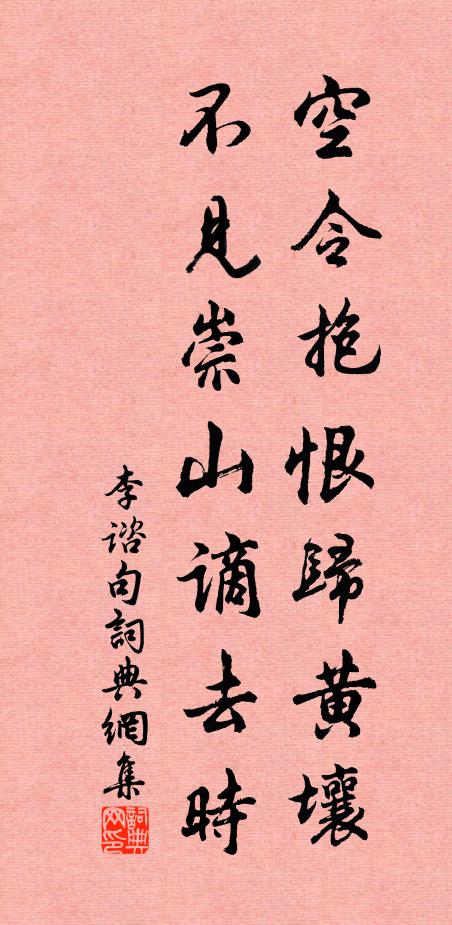 空令抱恨歸黃壤
不見崇山謫去時
李諮句詞典網集
詞典网印